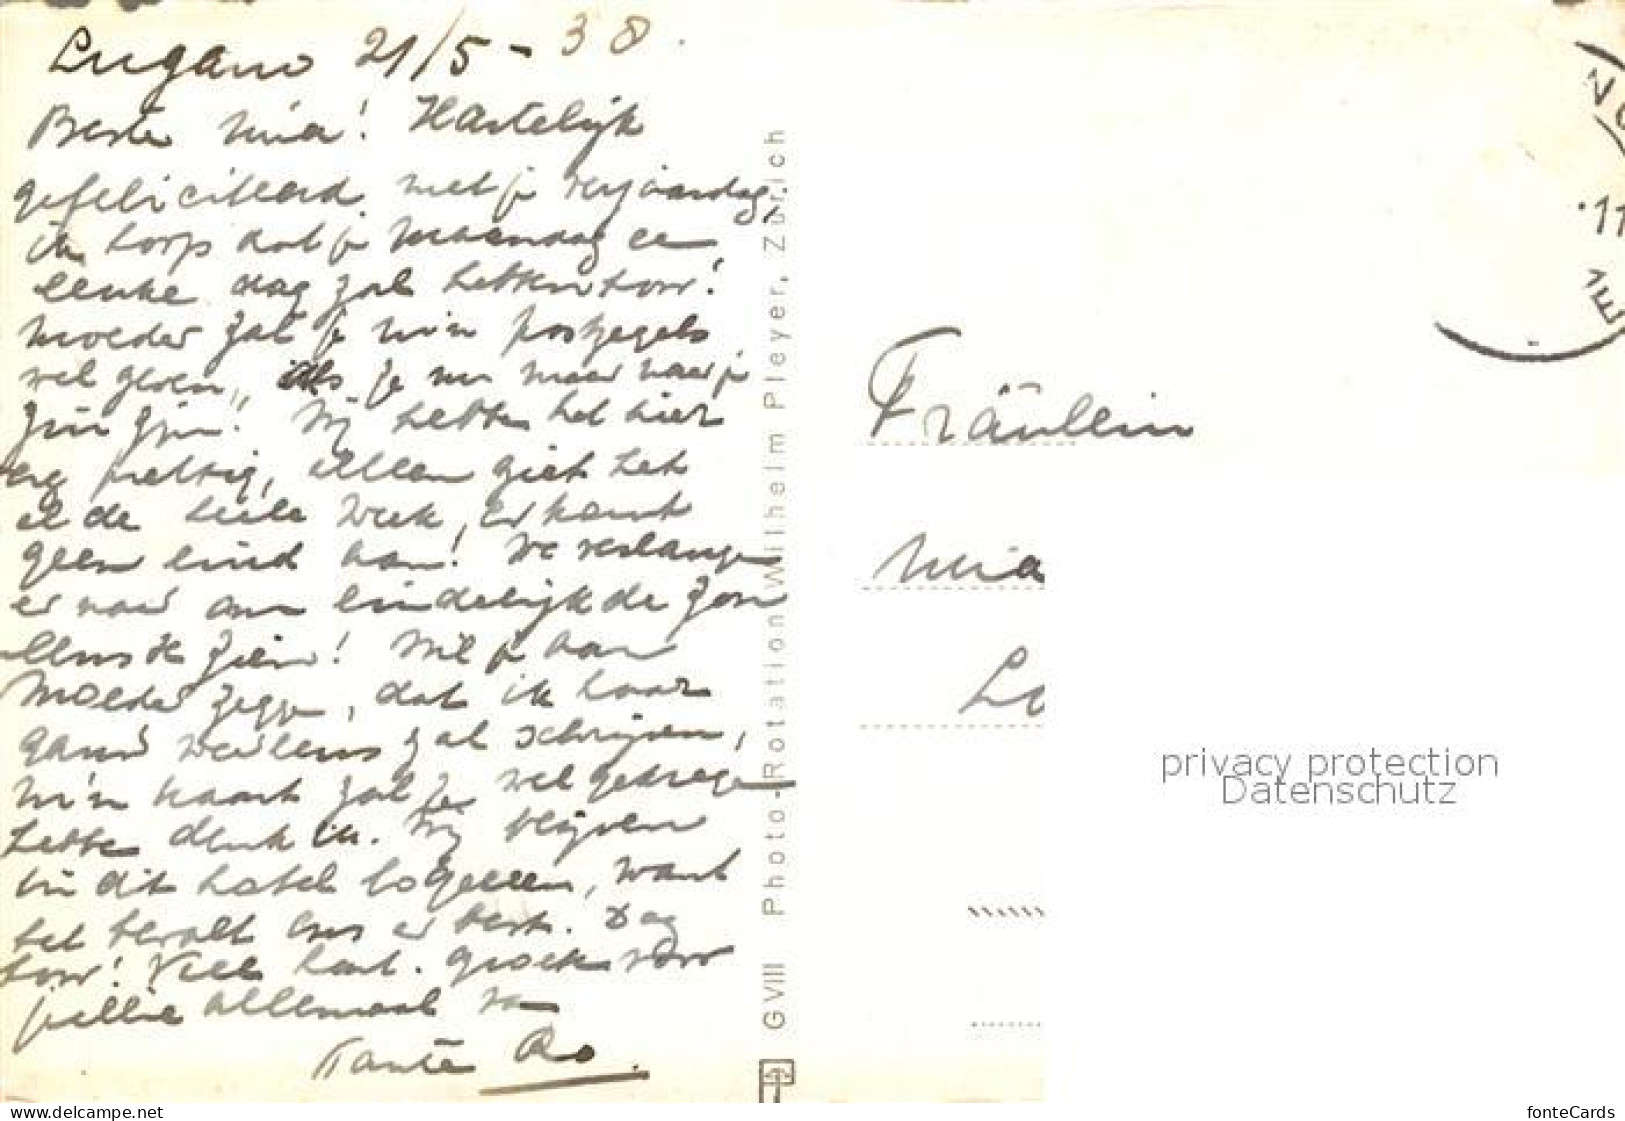 Lugano 21/5-38.
Beste Mia! Hartelijk
gefeliciteerd met je verjaardag,
ik hoop dat je Maandag een
leuke dag zal hebben hoor!
Moeder zal je m'n postzegels
wel geven, als je nu maar naar je
zin zijn! Wij hebben het hier
erg prettig, alleen giet het
al de heele week, er komt
geen eind aan! We verlangen
er naar om eindelijk de zon
eens te zien! Wil je aan
Moeder zeggen, dat ik haar
gauw weer eens zal schrijven,
m'n kaart zal ze wel gekregen
hebben denk ik. Wij blijven
in dit hotel logeeren, want
het bevalt ons er best. Dag
hoor! Veel hart. groeten voor
jullie allemaal van
Tante Ro.
G VIII Photo-Rotation Wilhelm Pleyer, Zürich
Fräulein
Mia
Lo
11
privacy protection
Datenschutz
www.delcampe.net
fonteCards